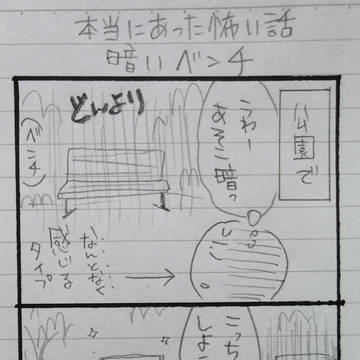 本当にあった怖い話
暗いベンチ
公園で
うわー
あそこ暗っ
どんより
(ベンチ)
なんとなく
感じる
タイプ
こっち
しよ